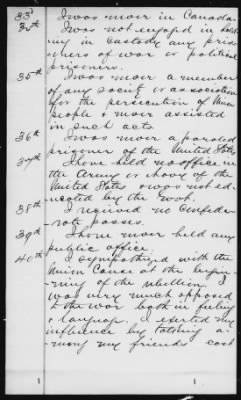 33d I was never in Canada
34th I was not engaged in hold
ing in custody any pris
oners of war or political
prisoners.
35th I was never a member
of any society or association
for the persecution of Union
people & never assisted
in such acts.
36th I was never a paroled
prisoner of the United States
37th I have held no office in
the Army or Navy of the
United States & was not ed-
ucated by the
38th I received no Confede-
rate passes.
39th I have never held any
public office.
40th I sympathized with the
Union Cause at the begin-
ning of the rebellion. I
was very much opposed
to the war both in feeling
& language. I exerted my
influence by talking a-
mong my friends cast